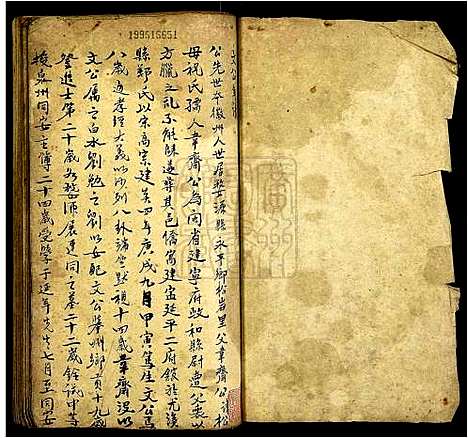 199515651
公先世本徽州人世居婺源縣永平鄉松岩里父韋齋公諱松
母祝氏孺人韋齋公為閩省建寧府政和縣尉遭父喪以
方臘之乱不能歸遂葬其邑僑寓建寧延平二府館於尤溪
縣鄭氏以宋高宗建炎四年庚戌九月甲寅篤生文公焉
八歲通孝經大義以沙列八卦端坐默視十四歲韋齋没以
文公属之白水劉勉之劉以女配文公舉州鄉貢十九歲
登進士第二十歲如婺源展連同之墓二十二歲銓試中等
授泉州同安主簿二十四歲受學于延平先生七月至同安